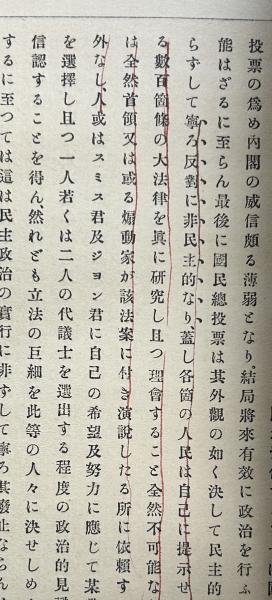 投票の爲め內閣の威信頗る薄弱となり、結局將來有效に政治を行ふ
能はざるに至らん最後に國民總投票は其外觀の如く決して民主的
らずして寧ろ反對に非民主的なり、蓋し各箇の人民は自己に提示せ
る數百箇條の大法律を眞に硏究し且つ理會すること全然不可能な
は全然首領又は或る煽動家が該法案に付き演說したる所に依賴す
外なし、人或はスミス君及ジョン君に自己の希望及努力に應じて某
を選擇し且つ一人若くは二人の代議士を選出する程度の政治的見
信認することを得ん、然れども立法の巨細を此等の人々に決せしめ
するに至つては這は民主政治の實行に非すして寧ろ其發止ならん